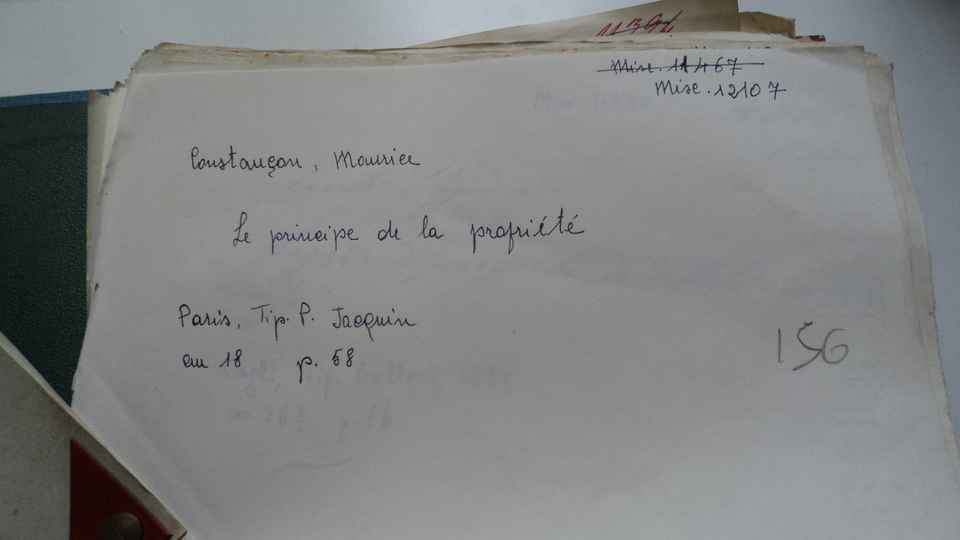 Misc. 11467
Misc. 12107
Constançon, Maurice
Le principe de la propriété
Paris, Tip. P. Jacquin
cm 18 p. 68
156